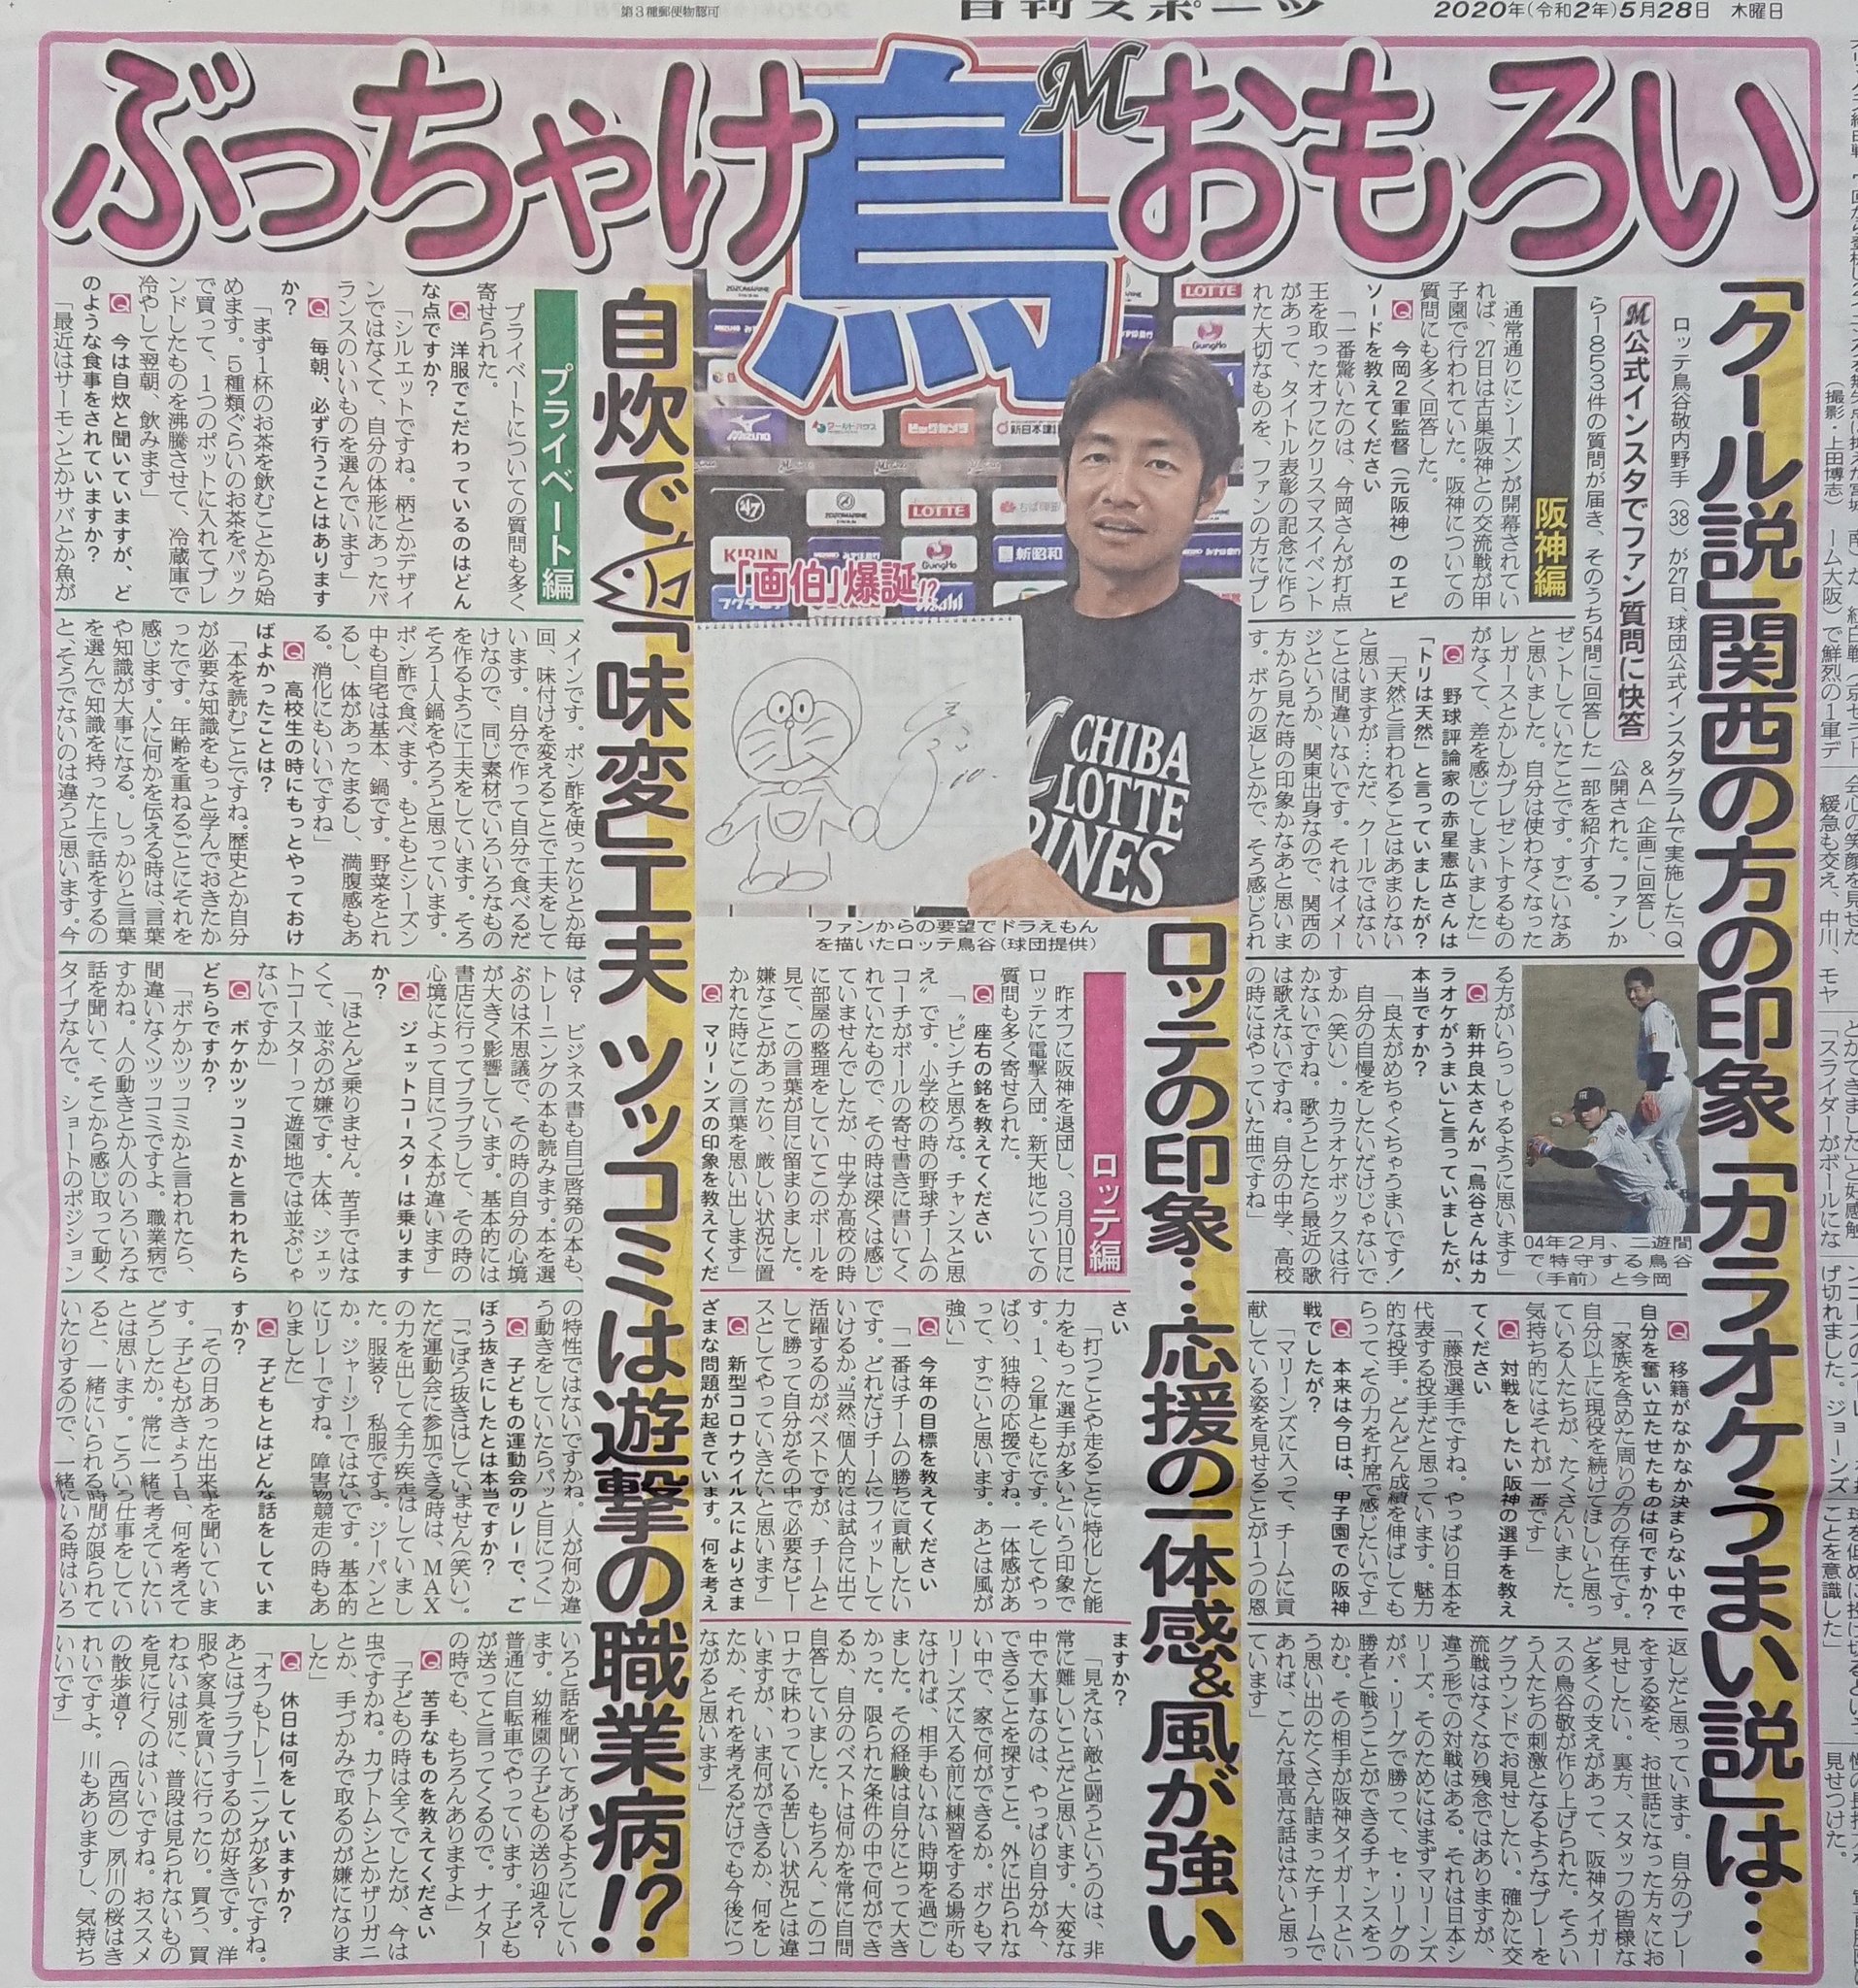 第3種郵便物認可
日刊スポーツ
2020年(令和2年)5月28日 木曜日
ぶっちゃけ鳥おもろい
「クール説」関西の方の印象「カラオケうまい説」は…
M公式インスタでファン質問に快答
ロッテ鳥谷敬内野手(38)が27日、球団公式インスタグラムで実施した「Q
&A」企画に回答し、
公開された。ファンか
ら1853件の質問が届き、そのうち54問に回答した一部を紹介する。
阪神編
通常通りにシーズンが開幕されてい
れば、27日は古巣阪神との交流戦が甲
子園で行われていた。阪神についての
質問にも多く回答した。
Q 今岡2軍監督(元阪神)のエピ
ソードを教えてください
「一番驚いたのは、今岡さんが打点
王を取ったオフにクリスマスイベント
があって、タイトル表彰の記念に作ら
れた大切なものを、ファンの方にプレ
ゼントしていたことです。すごいなあ
と思いました。自分は使わなくなった
レガースとかしかプレゼントするもの
がなくて、差を感じてしまいました」
Q 野球評論家の赤星憲広さんは
「トリは天然」と言っていましたが?
「天然と言われることはあまりない
と思いますが…ただ、クールではない
ことは間違いないです。それはイメー
ジというか、関東出身なので、関西の
方から見た時の印象かなあと思いま
す。ボケの返しとかで、そう感じられ
る方がいらっしゃるように思います」
Q 新井良太さんが「鳥谷さんはカ
ラオケがうまい」と言っていましたが、
本当ですか?
「良太がめちゃくちゃうまいです!
自分の自慢をしたいだけじゃないで
すか(笑い)。カラオケボックスは行
かないですね。歌うとしたら最近の歌
は歌えないですね。自分の中学、高校
の時にはやっていた曲ですね」
04年2月、二遊間
で特守する鳥谷
(手前)と今岡
Q 移籍がなかなか決まらない中で
自分を奮い立たせたものは何ですか?
「家族を含めた周りの方の存在です。
自分以上に現役を続けてほしいと思っ
ている人たちが、たくさんいました。
気持ち的にはそれが一番です」
Q 対戦をしたい阪神の選手を教え
てください
「藤浪選手ですね。やっぱり日本を
代表する投手だと思っています。魅力
的な投手。どんどん成績を伸ばしても
らって、その力を打席で感じたいです」
Q 本来は今日は、甲子園での阪神
戦でしたが?
「マリーンズに入って、チームに貢
献している姿を見せることが1つの恩
返しだと思っています。自分のプレー
をする姿を、お世話になった方々にお
見せしたい。裏方、スタッフの皆様な
ど多くの支えがあって、阪神タイガー
スの鳥谷敬が作り上げられた。そうい
う人たちの刺激となるようなプレーを
グラウンドでお見せしたい。確かに交
流戦はなくなり残念ではありますが、
違う形での対戦はある。それは日本シ
リーズ。そのためにはまずマリーンズ
がパ・リーグで勝って、セ・リーグの
勝者と戦うことができるチャンスをつ
かむ。その相手が阪神タイガースとい
う思い出のたくさん詰まったチームで
あれば、こんな最高な話はないと思っ
ています」
「画伯」爆誕!?
CHIBA
LOTTE
LOTTE
GungHo
MIZUNO
ワールドハウス
ビックカメラ
KIRIN
新昭和
ファンからの要望でドラえもん
を描いたロッテ鳥谷(球団提供)
ロッテの印象…応援の一体感&風が強い
ロッテ編
昨オフに阪神を退団し、3月10日に
ロッテに電撃入団。新天地についての
質問も多く寄せられた。
Q 座右の銘を教えてください
「“ピンチと思うな、チャンスと思
え”です。小学校の時の野球チームの
コーチがボールの寄せ書きに書いてく
れていたもので、その時は深くは感じ
ていませんでしたが、中学か高校の時
に部屋の整理をしていてこのボールを
見て、この言葉が目に留まりました。
嫌なことがあったり、厳しい状況に置
かれた時にこの言葉を思い出します」
Q マリーンズの印象を教えてくだ
さい
「打つことや走ることに特化した能
力をもった選手が多いという印象で
す。1、2軍ともにです。そしてやっ
ぱり、独特の応援ですね。一体感があ
って、すごいと思います。あとは風が
強い」
Q 今年の目標を教えてください
「一番はチームの勝ちに貢献したい
です。どれだけチームにフィットして
いけるか。当然、個人的には試合に出て
活躍するのがベストですが、チームと
して勝って自分がその中で必要なピー
スとしてやっていきたいと思います」
Q 新型コロナウイルスによりさま
ざまな問題が起きています。何を考え
ますか?
「見えない敵と闘うというのは、非
常に難しいことだと思います。大変な
中で大事なのは、やっぱり自分が今、
できることを探すこと。外に出られな
い中で、家で何ができるか。ボクもマ
リーンズに入る前に練習をする場所も
なければ、相手もいない時期を過ごし
ました。その経験は自分にとって大き
かった。限られた条件の中で何ができ
るか、自分のベストは何かを常に自問
自答していました。もちろん、このコ
ロナで味わっている苦しい状況とは違
いますが、いま何ができるか、何をし
たか、それを考えるだけでも今後につ
ながると思います」
自炊で「味変」工夫 ツッコミは遊撃の職業病!?
プライベート編
プライベートについての質問も多く
寄せられた。
Q 洋服でこだわっているのはどん
な点ですか?
「シルエットですね。柄とかデザイ
ンではなくて、自分の体形にあったバ
ランスのいいものを選んでいます」
Q 毎朝、必ず行うことはあります
か?
「まず1杯のお茶を飲むことから始
めます。5種類ぐらいのお茶をパック
で買って、1つのポットに入れてブレ
ンドしたものを沸騰させて、冷蔵庫で
冷やして翌朝、飲みます」
Q 今は自炊と聞いていますが、ど
のような食事をされていますか?
「最近はサーモンとかサバとか魚が
メインです。ポン酢を使ったりとか毎
回、味付けを変えることで工夫をして
います。自分で作って自分で食べるだ
けなので、同じ素材でいろいろなもの
を作るように工夫をしています。そろ
そろ1人鍋をやろうと思っています。
ポン酢で食べます。もともとシーズン
中も自宅は基本、鍋です。野菜をとれ
るし、体があったまるし、満腹感もあ
る。消化にもいいですね」
Q 高校生の時にもっとやっておけ
ばよかったことは?
「本を読むことですね。歴史とか自分
が必要な知識をもっと学んでおきたか
ったです。年齢を重ねるごとにそれを
感じます。人に何かを伝える時は、言葉
や知識が大事になる。しっかりと言葉
を選んで知識を持った上で話をするの
と、そうでないのは違うと思います。今
は? ビジネス書も自己啓発の本も、
トレーニングの本も読みます。本を選
ぶのは不思議で、その時の自分の心境
が大きく影響しています。基本的には
書店に行ってブラブラして、その時の
心境によって目につく本が違います」
Q ジェットコースターは乗ります
か?
「ほとんど乗りません。苦手ではな
くて、並ぶのが嫌です。大体、ジェッ
トコースターって遊園地では並ぶじゃ
ないですか」
Q ボケかツッコミかと言われたら
どちらですか?
「ボケかツッコミかと言われたら、
間違いなくツッコミですよ。職業病で
すかね。人の動きとか人のいろいろな
話を聞いて、そこから感じ取って動く
タイプなんで。ショートのポジション
の特性ではないですかね。人が何か違
う動きをしていたらパッと目につく」
Q 子どもの運動会のリレーで、ご
ぼう抜きにしたとは本当ですか?
「ごぼう抜きはしていません(笑い)。
ただ運動会に参加できる時は、MAX
の力を出して全力疾走はしていまし
た。服装? 私服ですよ。ジーパンと
か。ジャージーではないです。基本的
にリレーですね。障害物競走の時もあ
りました」
Q 子どもとはどんな話をしていま
すか?
「その日あった出来事を聞いていま
す。子どもがきょう1日、何を考えて
どうしたか。常に一緒に考えていたい
とは思います。こういう仕事をしてい
ると、一緒にいられる時間が限られて
いたりするので、一緒にいる時はいろ
いろと話を聞いてあげるようにしてい
ます。幼稚園の子どもの送り迎え?
普通に自転車でやっています。子ども
が送ってと言ってくるので。ナイター
の時でも、もちろんありますよ」
Q 苦手なものを教えてください
「子どもの時は全くでしたが、今は
虫ですかね。カブトムシとかザリガニ
とか、手づかみで取るのが嫌になりま
した」
Q 休日は何をしていますか?
「オフもトレーニングが多いですね。
あとはブラブラするのが好きです。洋
服や家具を買いに行ったり。買う、買
わないは別に、普段は見られないもの
を見に行くのはいいですね。おススメ
の散歩道? (西宮の)夙川の桜はき
れいですよ。川もありますし、気持ち
いいです」